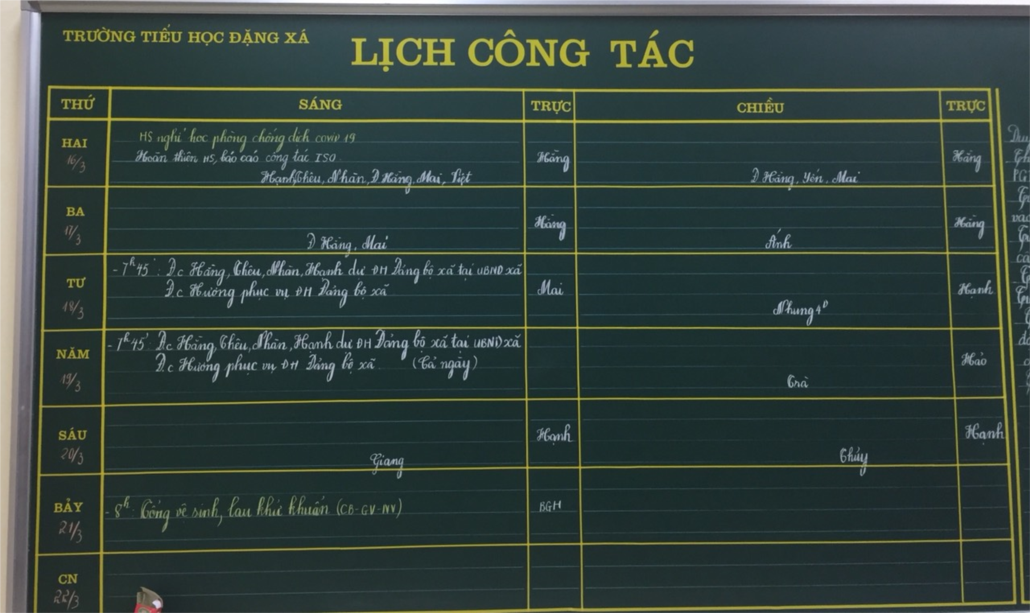 TRƯỜNG TIỂU HỌC ĐẶNG XÁ
LỊCH CÔNG TÁC
THỨ SÁNG TRỰC CHIỀU TRỰC
HAI
16/3
HS nghỉ học phòng chống dịch covid 19
Hoàn thiện HS, báo cáo công tác ISO
Hạnh, Thêu, Nhàn, Đ Hằng, Mai, Việt
Hằng
Đ Hằng, Yến, Mai
Hằng
BA
17/3
Đ Hằng, Mai
Hằng
Ánh
Hằng
TƯ
18/3
- 7h45': Đ/c Hằng, Thêu, Nhàn, Hạnh dự ĐH Đảng bộ xã tại UBND xã
Đ/c Hương phục vụ ĐH Đảng bộ xã
Mai
Nhung 4D
Hạnh
NĂM
19/3
- 7h45' Đ/c Hằng, Thêu, Nhàn, Hạnh dự ĐH Đảng bộ xã tại UBND xã
Đ/c Hương phục vụ ĐH Đảng bộ xã (Cả ngày)
Trà
Hảo
SÁU
20/3
Giang
Hạnh
Thủy
Hạnh
BẢY
21/3
- 8h: Tổng vệ sinh, lau khử khuẩn (CB-GV-NV)
BGH
CN
22/3